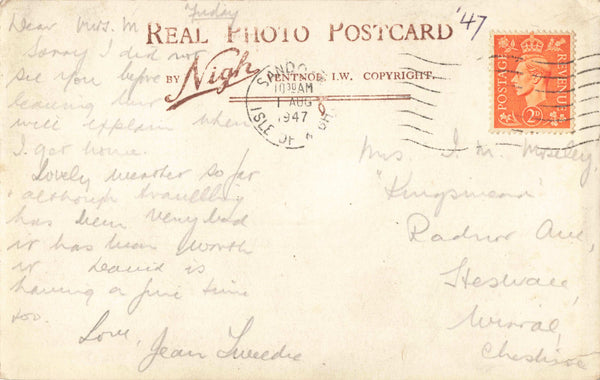 Friday
Dear Mrs. M
Sorry I did not
see you before
leaving but
will explain when
I get home.
Lovely weather so far
although travelling
has been very bad
it has been worth
it David is
having a fine time
too.
Love,
Jean Tweedie
REAL PHOTO POSTCARD
'47
BY Nigh VENTNOR, I.W. COPYRIGHT.
10 AM
1 AUG
1947
ISLE OF
POSTAGE
REVENUE
2D
Mrs. I. M. Moseley,
"Kingsmead"
Radnor Ave,
Heswall,
Wirral,
Cheshire